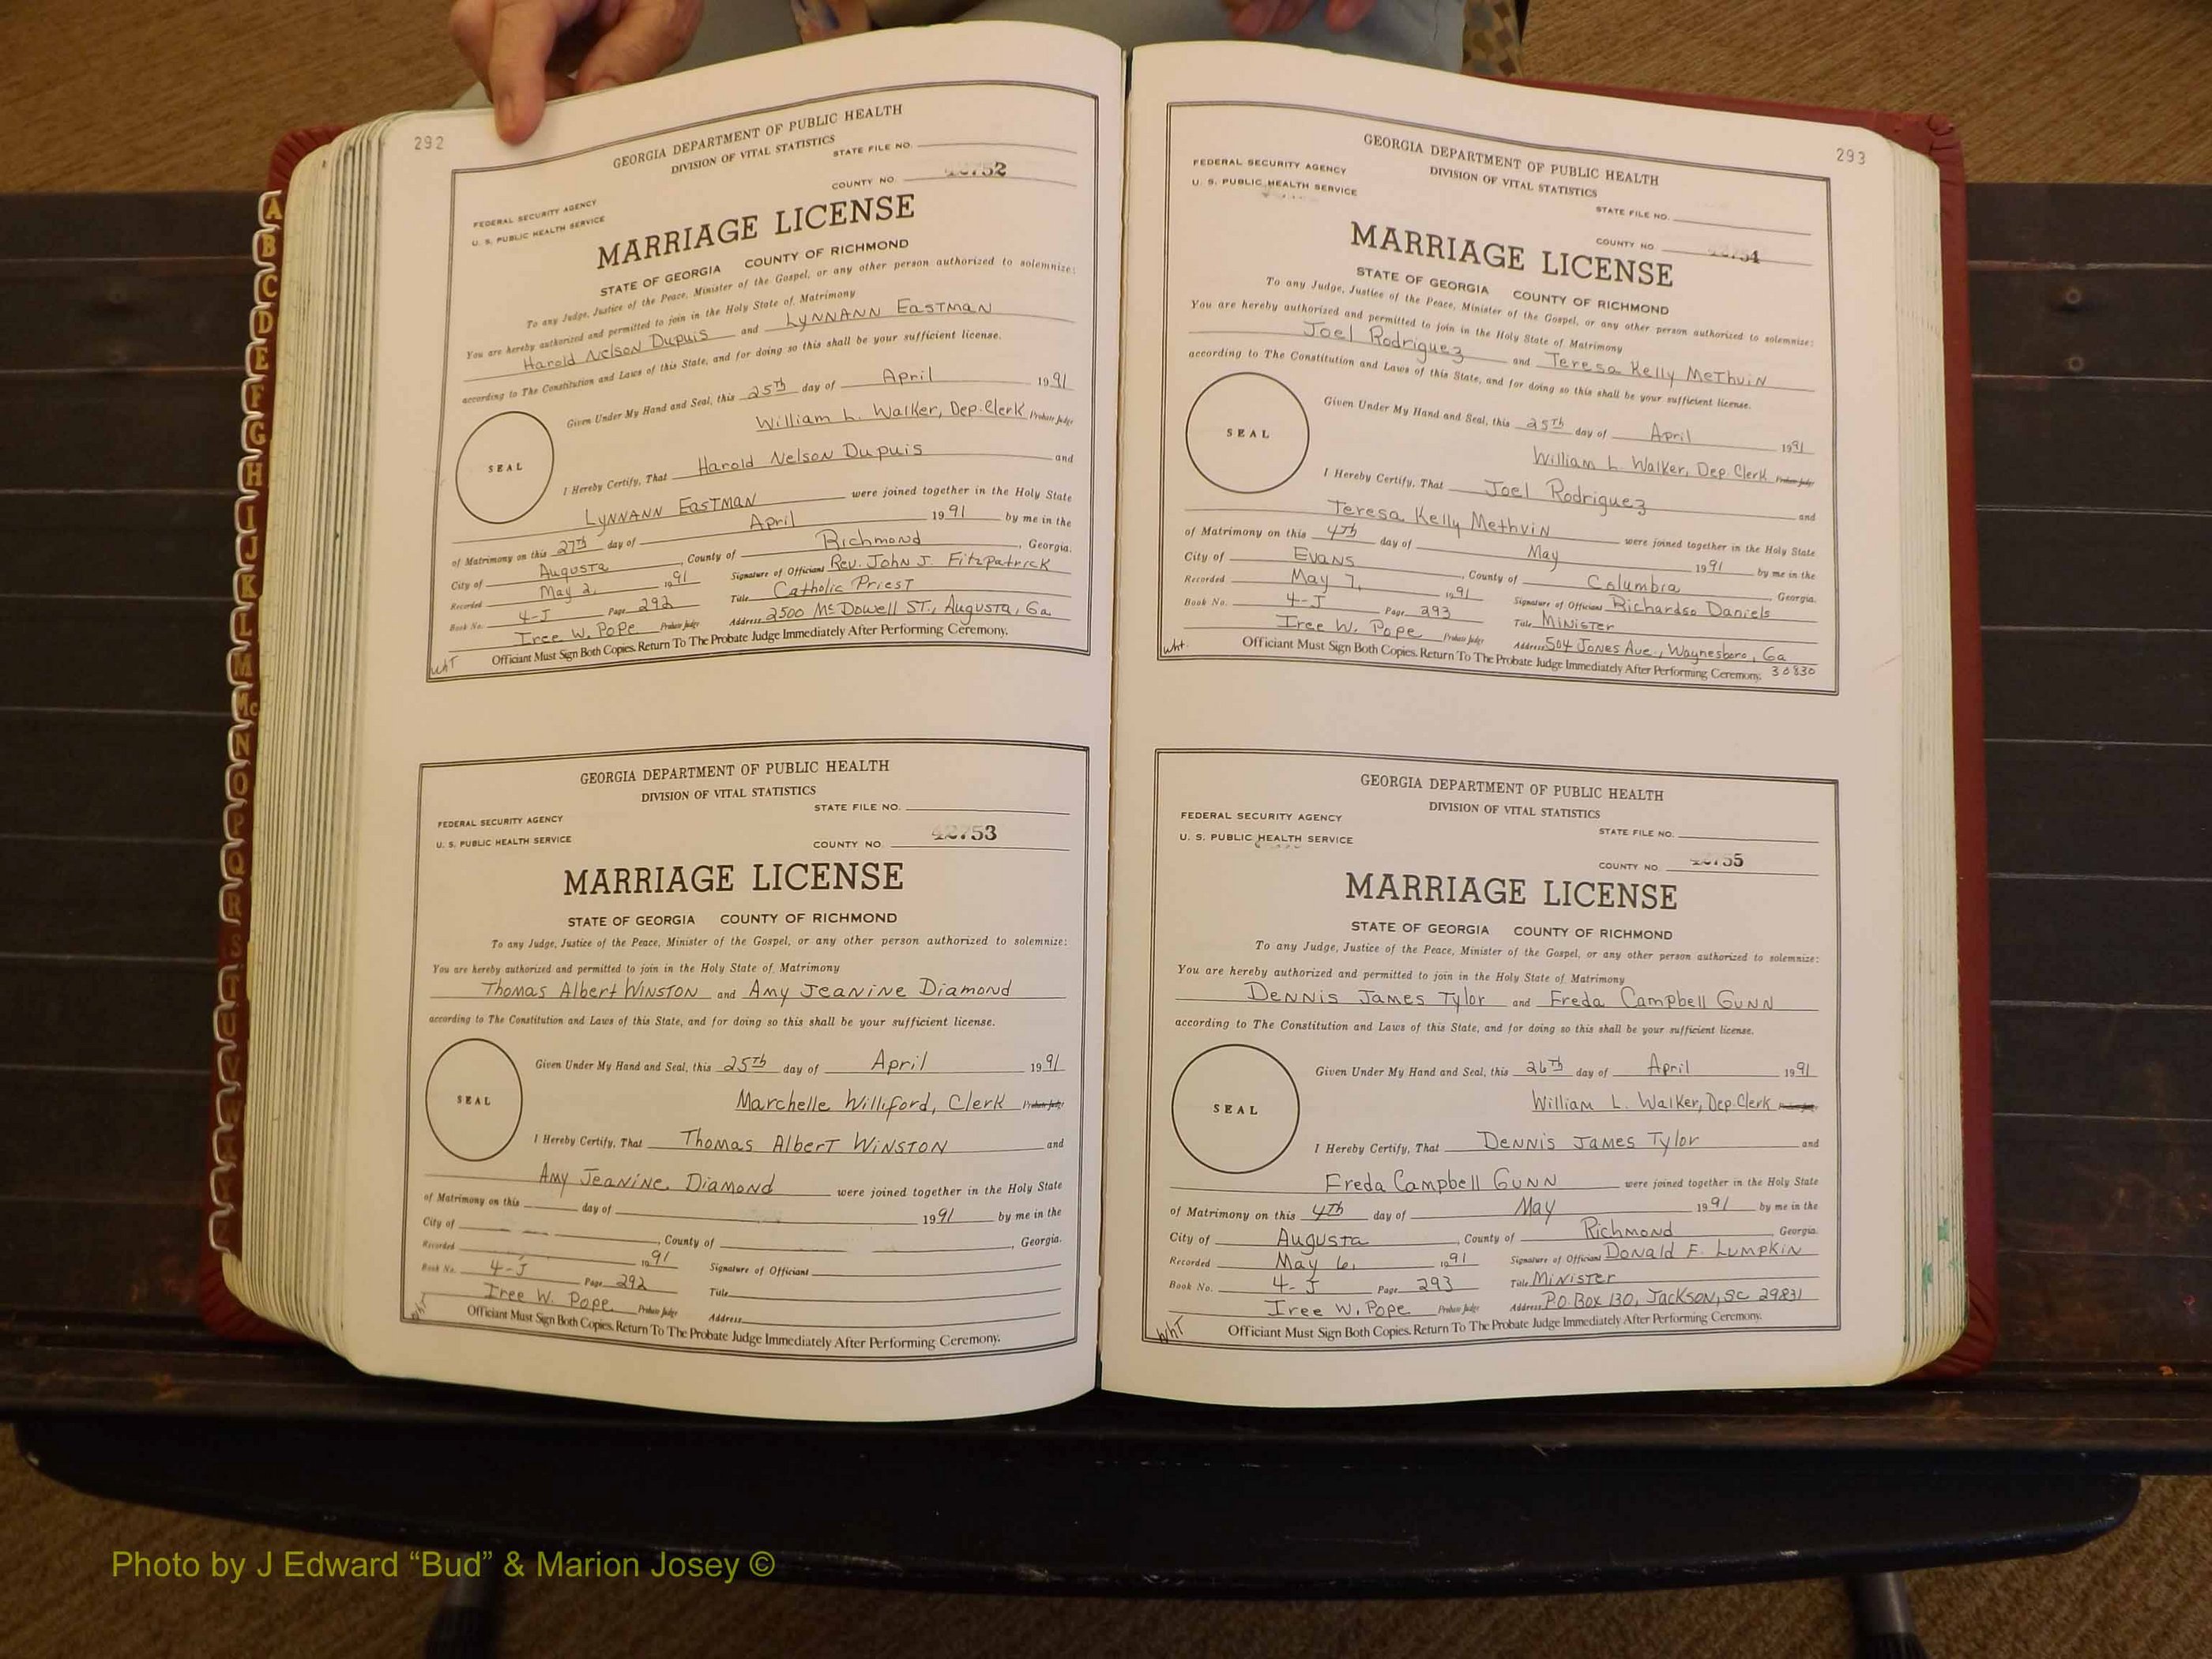 292
GEORGIA DEPARTMENT OF PUBLIC HEALTH
DIVISION OF VITAL STATISTICS
STATE FILE NO.
COUNTY NO. 42752
FEDERAL SECURITY AGENCY
U. S. PUBLIC HEALTH SERVICE
MARRIAGE LICENSE
STATE OF GEORGIA COUNTY OF RICHMOND
To any Judge, Justice of the Peace, Minister of the Gospel, or any other person authorized to solemnize:
You are hereby authorized and permitted to join in the Holy State of Matrimony
Harold Nelson Dupuis and Lynnann Eastman
according to The Constitution and Laws of this State, and for doing so this shall be your sufficient license.
Given Under My Hand and Seal, this 25th day of April 1991
William L. Walker, Dep. Clerk Probate Judge
SEAL
I Hereby Certify, That Harold Nelson Dupuis and
Lynnann Eastman were joined together in the Holy State
of Matrimony on this 27th day of April 1991 by me in the
City of Augusta, County of Richmond, Georgia.
Recorded May 2, 1991 Signature of Officiant Rev. John J. Fitzpatrick
Book No. 4-J Page 292 Title Catholic Priest
Iree W. Pope Probate Judge Address 2500 McDowell St., Augusta, Ga
Officiant Must Sign Both Copies. Return To The Probate Judge Immediately After Performing Ceremony.
WhT
GEORGIA DEPARTMENT OF PUBLIC HEALTH
DIVISION OF VITAL STATISTICS
STATE FILE NO.
FEDERAL SECURITY AGENCY
U. S. PUBLIC HEALTH SERVICE
COUNTY NO. 42753
MARRIAGE LICENSE
STATE OF GEORGIA COUNTY OF RICHMOND
To any Judge, Justice of the Peace, Minister of the Gospel, or any other person authorized to solemnize:
You are hereby authorized and permitted to join in the Holy State of Matrimony
Thomas Albert Winston and Amy Jeanine Diamond
according to The Constitution and Laws of this State, and for doing so this shall be your sufficient license.
Given Under My Hand and Seal, this 25th day of April 1991
Marchelle Williford, Clerk Probate Judge
SEAL
I Hereby Certify, That Thomas Albert Winston and
Amy Jeanine Diamond were joined together in the Holy State
of Matrimony on this day of 1991 by me in the
City of , County of , Georgia.
Recorded 1991 Signature of Officiant
Book No. 4-J Page 292 Title
Iree W. Pope Probate Judge Address
Officiant Must Sign Both Copies. Return To The Probate Judge Immediately After Performing Ceremony.
WhT
293
GEORGIA DEPARTMENT OF PUBLIC HEALTH
DIVISION OF VITAL STATISTICS
FEDERAL SECURITY AGENCY
U. S. PUBLIC HEALTH SERVICE
STATE FILE NO.
COUNTY NO. 42754
MARRIAGE LICENSE
STATE OF GEORGIA COUNTY OF RICHMOND
To any Judge, Justice of the Peace, Minister of the Gospel, or any other person authorized to solemnize:
You are hereby authorized and permitted to join in the Holy State of Matrimony
Joel Rodriguez and Teresa Kelly Methvin
according to The Constitution and Laws of this State, and for doing so this shall be your sufficient license.
Given Under My Hand and Seal, this 25th day of April 1991
William L. Walker, Dep. Clerk Probate Judge
SEAL
I Hereby Certify, That Joel Rodriguez and
Teresa Kelly Methvin were joined together in the Holy State
of Matrimony on this 4th day of May 1991 by me in the
City of Evans, County of Columbia, Georgia.
Recorded May 7, 1991 Signature of Officiant Richardso Daniels
Book No. 4-J Page 293 Title Minister
Iree W. Pope Probate Judge Address 504 Jones Ave., Waynesboro, Ga
Officiant Must Sign Both Copies. Return To The Probate Judge Immediately After Performing Ceremony. 30830
Wht
GEORGIA DEPARTMENT OF PUBLIC HEALTH
DIVISION OF VITAL STATISTICS
FEDERAL SECURITY AGENCY
U. S. PUBLIC HEALTH SERVICE
STATE FILE NO.
COUNTY NO. 42755
MARRIAGE LICENSE
STATE OF GEORGIA COUNTY OF RICHMOND
To any Judge, Justice of the Peace, Minister of the Gospel, or any other person authorized to solemnize:
You are hereby authorized and permitted to join in the Holy State of Matrimony
Dennis James Tylor and Freda Campbell Gunn
according to The Constitution and Laws of this State, and for doing so this shall be your sufficient license.
Given Under My Hand and Seal, this 26th day of April 1991
William L. Walker, Dep. Clerk
SEAL
I Hereby Certify, That Dennis James Tylor and
Freda Campbell Gunn were joined together in the Holy State
of Matrimony on this 4th day of May 1991 by me in the
City of Augusta, County of Richmond, Georgia.
Recorded May 6, 1991 Signature of Officiant Donald F. Lumpkin
Book No. 4-J Page 293 Title Minister
Iree W. Pope Probate Judge Address P.O. Box 130, Jackson, SC 29831
Officiant Must Sign Both Copies. Return To The Probate Judge Immediately After Performing Ceremony.
WhT
A
B
C
D
E
F
G
H
I
J
K
L
M
Mc
N
O
P
Q
R
S
T
U
V
W
Photo by J Edward “Bud” & Marion Josey ©